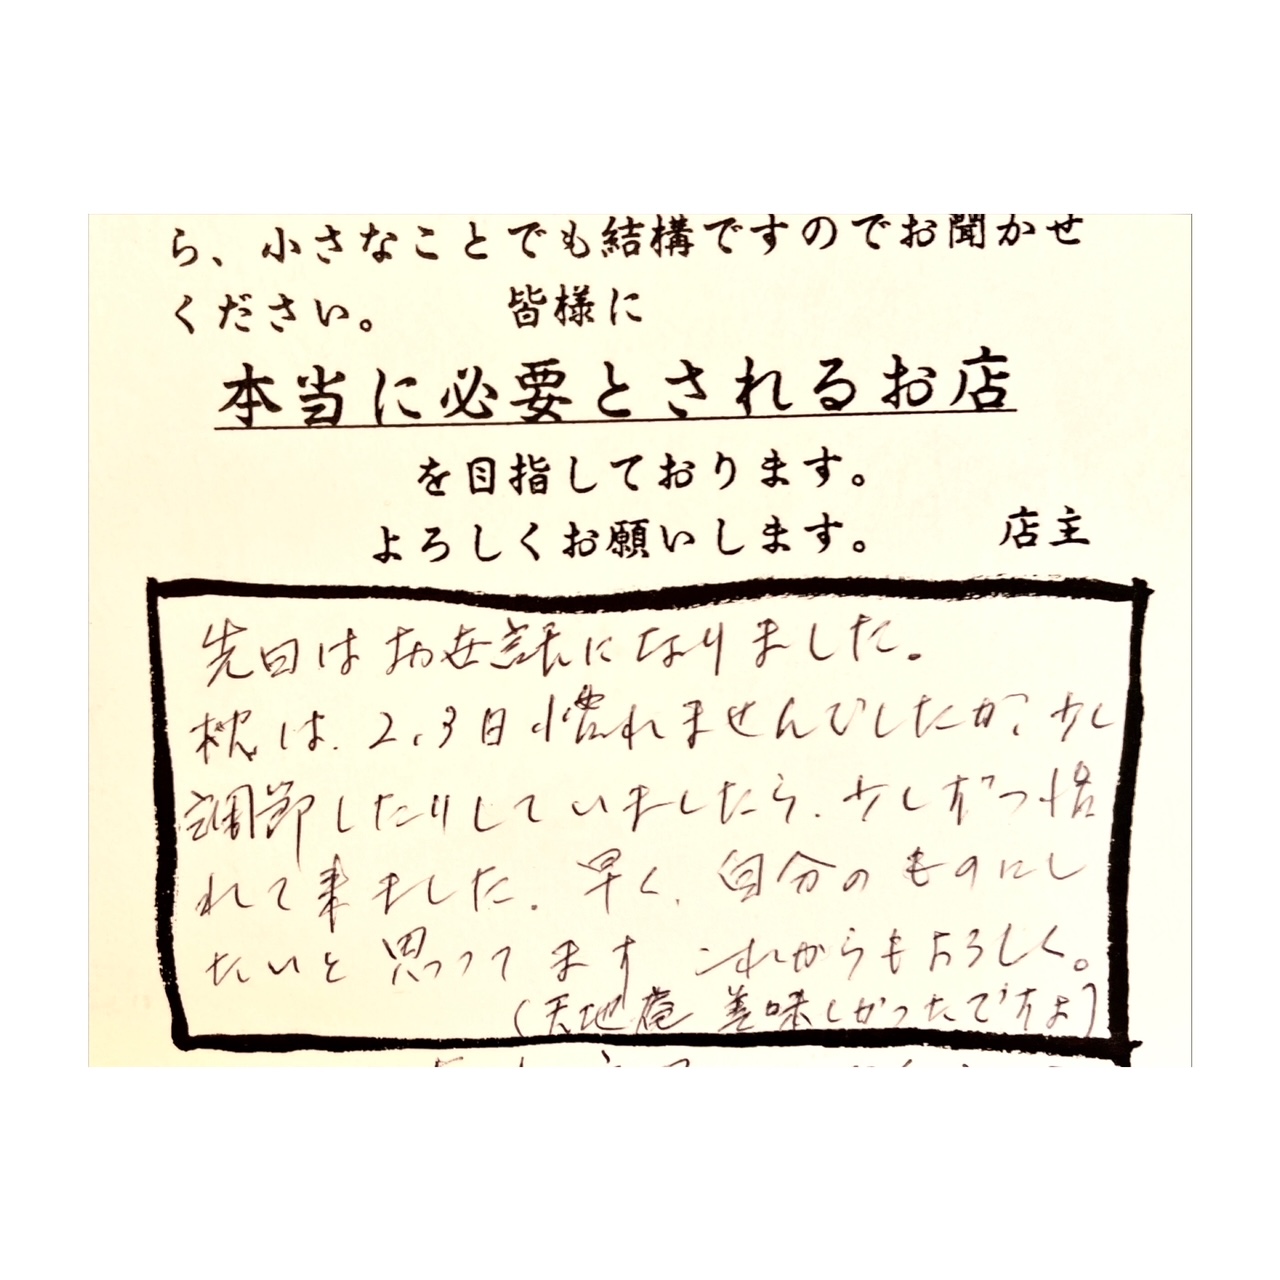 ら、小さなことでも結構ですのでお聞かせ
ください。　　皆様に
本当に必要とされるお店
を目指しております。
よろしくお願いします。　　店主
先日はお世話になりました。
枕は、2、3日慣れませんでしたが、少し
調節したりしていましたら、少しずつ慣
れて来ました。早く、自分のものにし
たいと思ってます これからもよろしく。
(天地庵 美味しかったですよ)